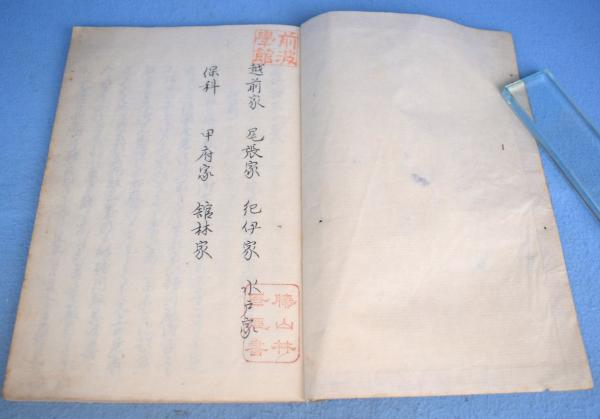 前波
學館
越前家 尾張家 紀伊家 水戸家
保科 甲府家 舘林家
勝山林